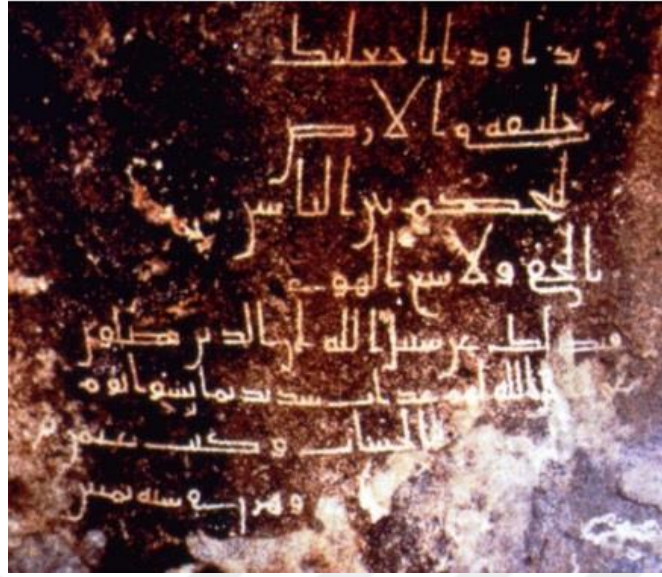 يداود انا جعلنك
خليفه في الارض
فاحكم بين الناس
بالحق ولا تتبع الهوى
فيضلك عن سبيل الله ان الذين يضلون
عن سبيل الله لهم عذاب شديد بما نسوا يوم
الحساب وكتب عثمن بن
وهرن في سنه ثمنين